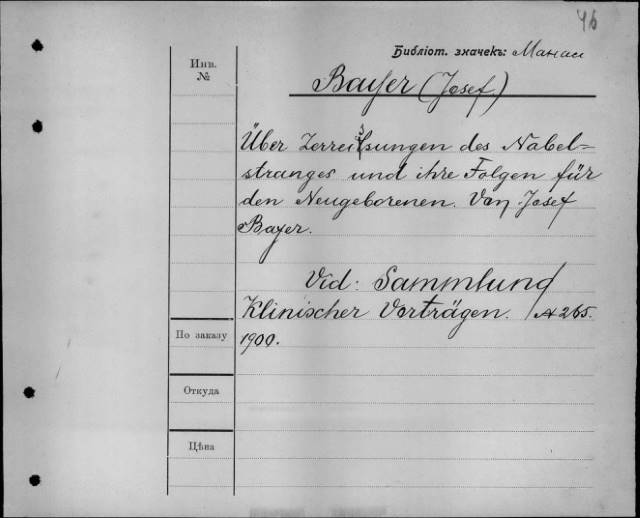 46
Библіот. значекъ: Манасс
Инв.
№
Bayer (Josef)
Über Zerreissungen des Nabel=
stranges und ihre Folgen für
den Neugeborenen. Von Josef
Bayer.
Vid: Sammlung
Klinischer Vorträgen. № 265.
По заказу
1900.
Откуда
Цѣна